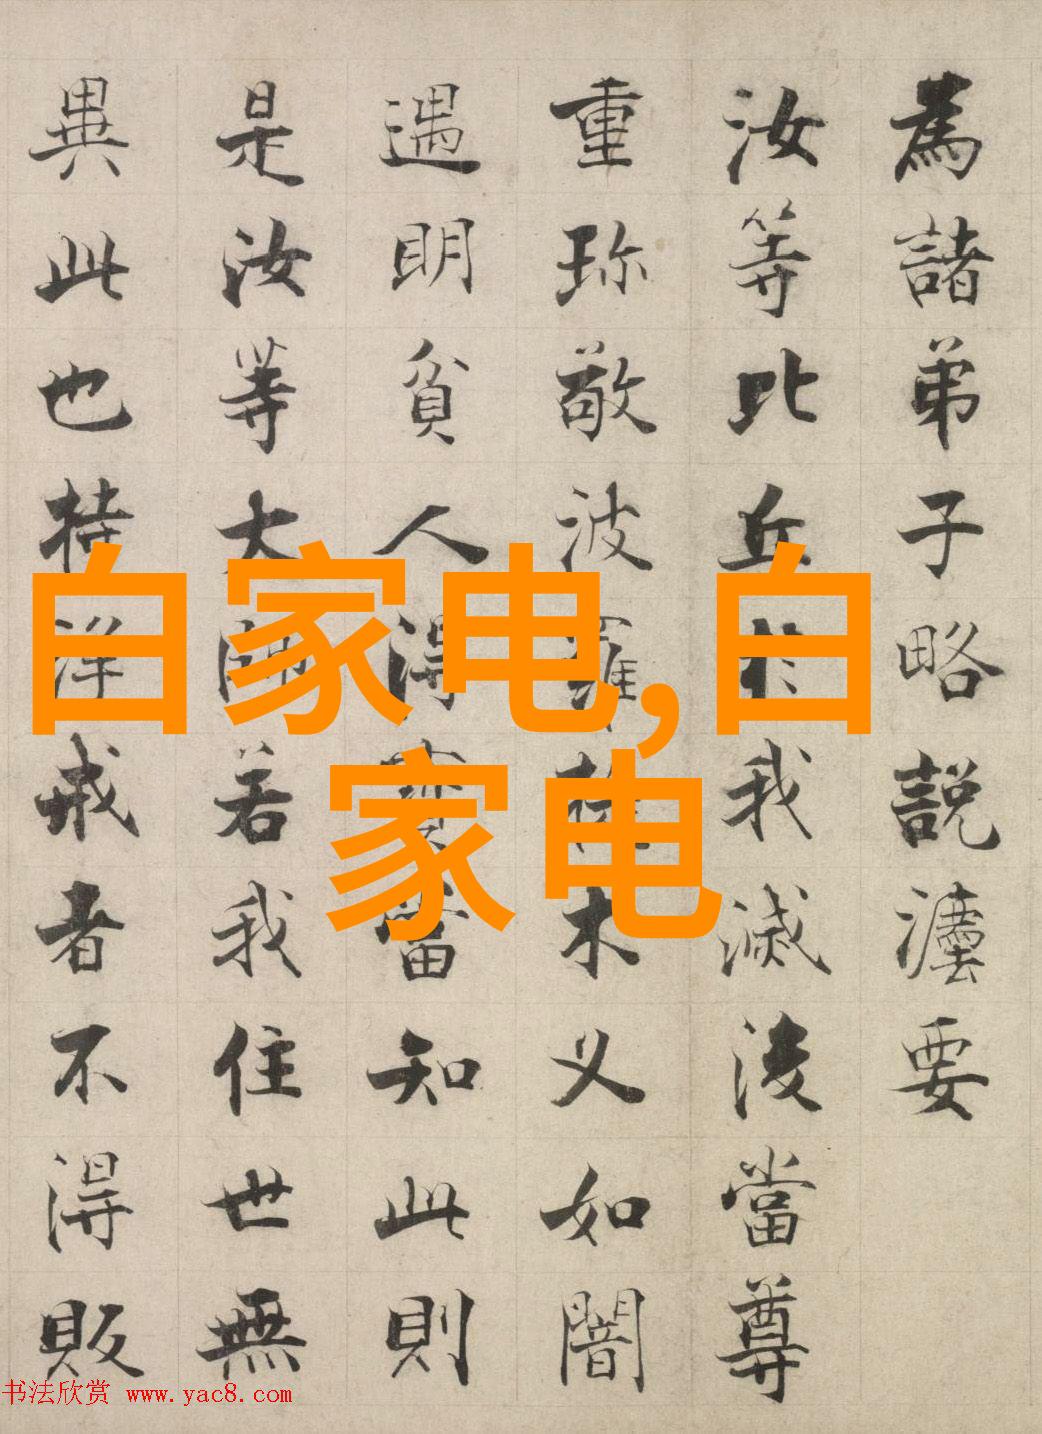 為諸弟子略說灋要
汝等比丘於我滅後當尊
重珎敬波羅提木叉如闇
遇明貧人得寶當知此則
是汝等大師若我住世無
異此也持淨戒者不得販
白家电,白
家电
书法欣赏 www.yac8.com